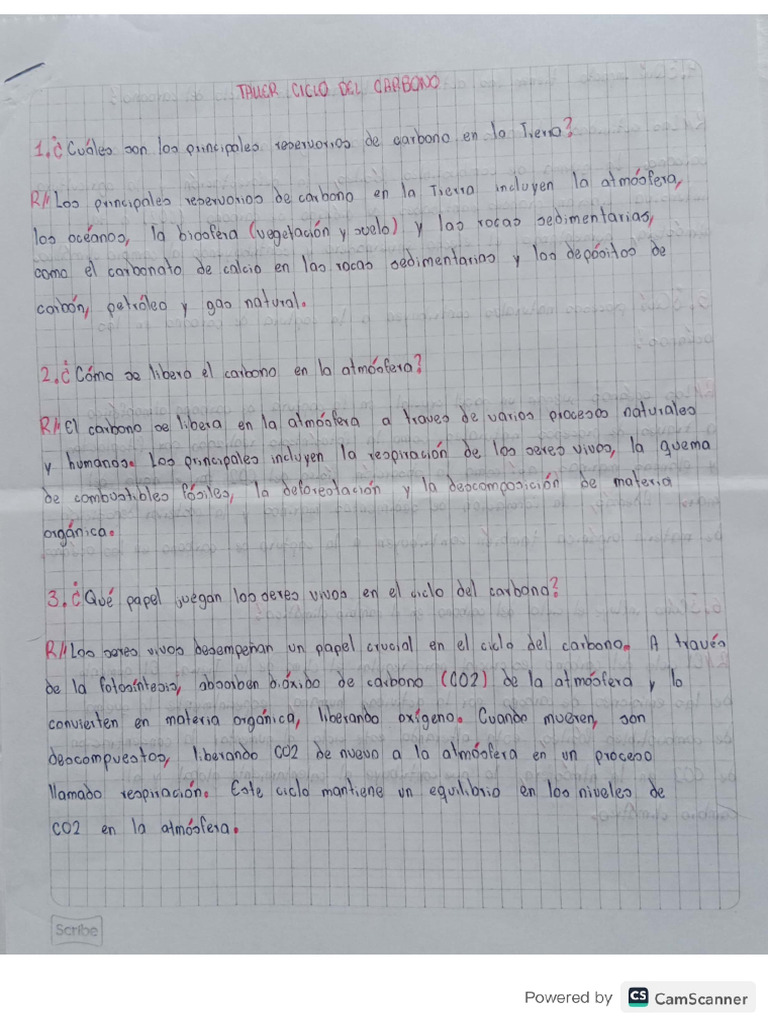 TALLER CICLO DEL CARBONO
1. ¿Cuáles son los principales reservorios de carbono en la Tierra?
R// Los principales reservorios de carbono en la Tierra incluyen la atmósfera,
los océanos, la biosfera (vegetación y suelo) y las rocas sedimentarias,
como el carbonato de calcio en las rocas sedimentarias y los depósitos de
carbón, petróleo y gas natural.
2. ¿Cómo se libera el carbono en la atmósfera?
R// El carbono se libera en la atmósfera a traves de varios procesos naturales
y humanos. Los principales incluyen la respiración de los seres vivos, la quema
de combustibles fósiles, la deforestación y la descomposición de materia
orgánica.
3. ¿Qué papel juegan los seres vivos en el ciclo del carbono?
R// Los seres vivos desempeñan un papel crucial en el ciclo del carbono. A través
de la fotosíntesis, absorben dióxido de carbono (CO2) de la atmósfera y lo
convierten en materia orgánica, liberando oxígeno. Cuando mueren, son
descompuestos, liberando CO2 de nuevo a la atmósfera en un proceso
llamado respiración. Este ciclo mantiene un equilibrio en los niveles de
CO2 en la atmósfera.
Scribe
Powered by CS CamScanner